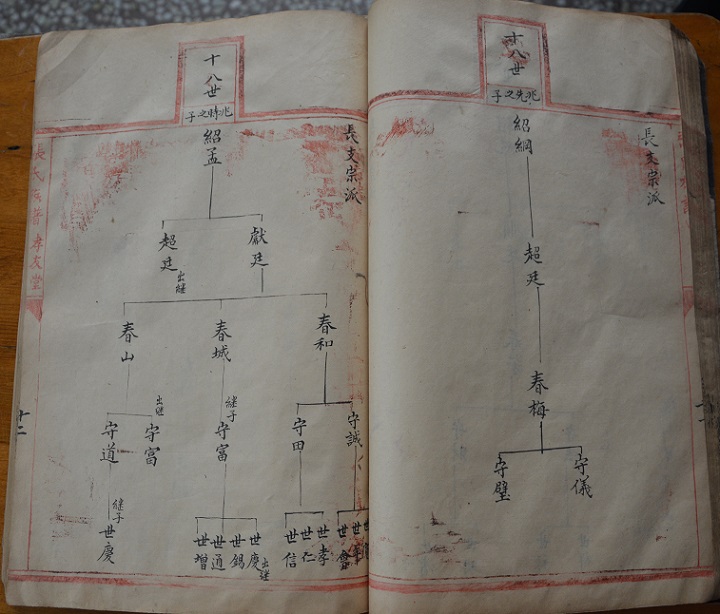 十八世
兆先之子
長支宗派
紹綱
超廷
春梅
守儀
守璧
十八世
兆時之子
長支宗派
紹孟
獻廷
超廷 出継
春和
春城
春山
守誠
守田
継子 守富
出継 守富
守道
世孝
世仁
世信
世慶 出継
世錫
世通
世增
継子 世慶
張氏族譜 孝友堂
十二